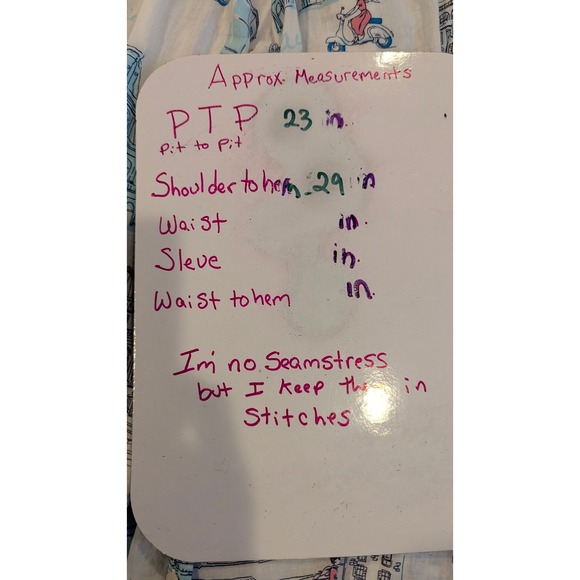 Approx. Measurements
PTP 23 in.
Pit to Pit
Shoulder to hem - 29 in
Waist in.
Sleve in.
Waist to hem in.
Im no Seamstress
but I keep in
Stitches